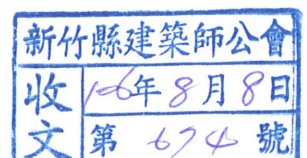 新竹縣建築師公會
收文
106年8月8日
第 674 號